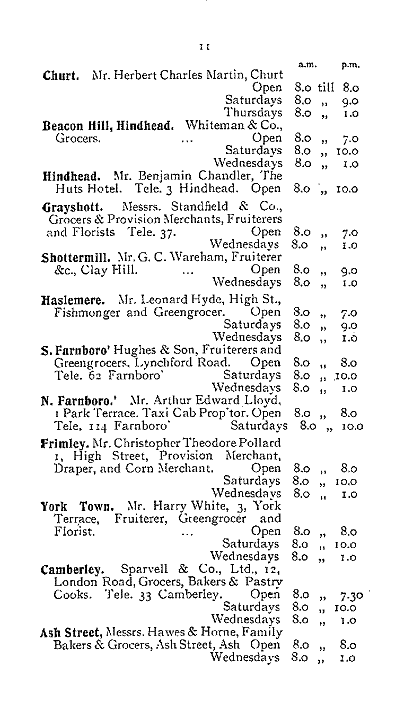 11
a.m. p.m.
Churt. Mr. Herbert Charles Martin, Churt
Open 8.0 till 8.0
Saturdays 8.0 ,, 9.0
Thursdays 8.0 ,, 1.0
Beacon Hill, Hindhead. Whiteman & Co.,
Grocers. ... Open 8.0 ,, 7.0
Saturdays 8.0 ,, 10.0
Wednesdays 8.0 ,, 1.0
Hindhead. Mr. Benjamin Chandler, The
Huts Hotel. Tele. 3 Hindhead. Open 8.0 ,, 10.0
Grayshott. Messrs. Standfield & Co.,
Grocers & Provision Merchants, Fruiterers
and Florists Tele. 37. Open 8.0 ,, 7.0
Wednesdays 8.0 ,, 1.0
Shottermill. Mr. G. C. Wareham, Fruiterer
&c., Clay Hill. ... Open 8.0 ,, 9.0
Wednesdays 8.0 ,, 1.0
Haslemere. Mr. Leonard Hyde, High St.,
Fishmonger and Greengrocer. Open 8.0 ,, 7.0
Saturdays 8.0 ,, 9.0
Wednesdays 8.0 ,, 1.0
S. Farnboro' Hughes & Son, Fruiterers and
Greengrocers, Lynchford Road. Open 8.0 ,, 8.0
Tele. 62 Farnboro' Saturdays 8.0 ,, 10.0
Wednesdays 8.0 ,, 1.0
N. Farnboro.' Mr. Arthur Edward Lloyd,
1 Park Terrace. Taxi Cab Prop'tor. Open 8.0 ,, 8.0
Tele. 114 Farnboro' Saturdays 8.0 ,, 10.0
Frimley. Mr. Christopher Theodore Pollard
1, High Street, Provision Merchant,
Draper, and Corn Merchant. Open 8.0 ,, 8.0
Saturdays 8.0 ,, 10.0
Wednesdays 8.0 ,, 1.0
York Town. Mr. Harry White, 3, York
Terrace, Fruiterer, Greengrocer and
Florist. ... Open 8.0 ,, 8.0
Saturdays 8.0 ,, 10.0
Wednesdays 8.0 ,, 1.0
Camberley. Sparvell & Co., Ltd., 12,
London Road, Grocers, Bakers & Pastry
Cooks. Tele. 33 Camberley. Open 8.0 ,, 7.30
Saturdays 8.0 ,, 10.0
Wednesdays 8.0 ,, 1.0
Ash Street, Messrs. Hawes & Horne, Family
Bakers & Grocers, Ash Street, Ash Open 8.0 ,, 8.0
Wednesdays 8.0 ,, 1.0